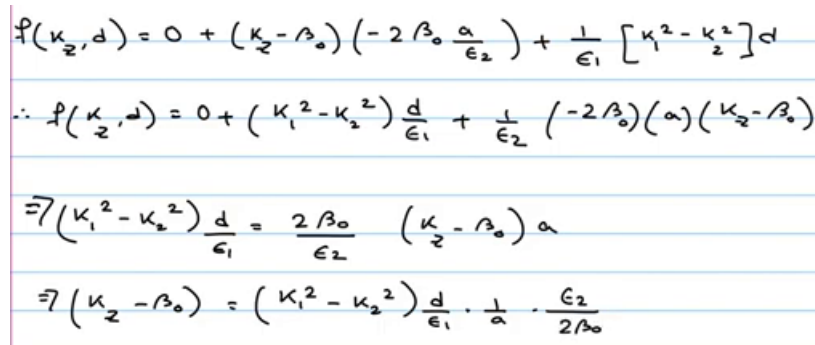 f(K_z, d) = 0 + (K_z - β₀)(-2β₀ a/ε₂) + 1/ε₁ [K₁² - K_z²]d
∴ f(K_z, d) = 0 + (K₁² - K_z²) d/ε₁ + 1/ε₂ (-2β₀)(a)(K_z - β₀)
⇒ (K₁² - K₂²) d/ε₁ = 2β₀/ε₂ (K_z - β₀) a
⇒ (K_z - β₀) = (K₁² - K₂²) d/ε₁ · 1/a · ε₂/2β₀